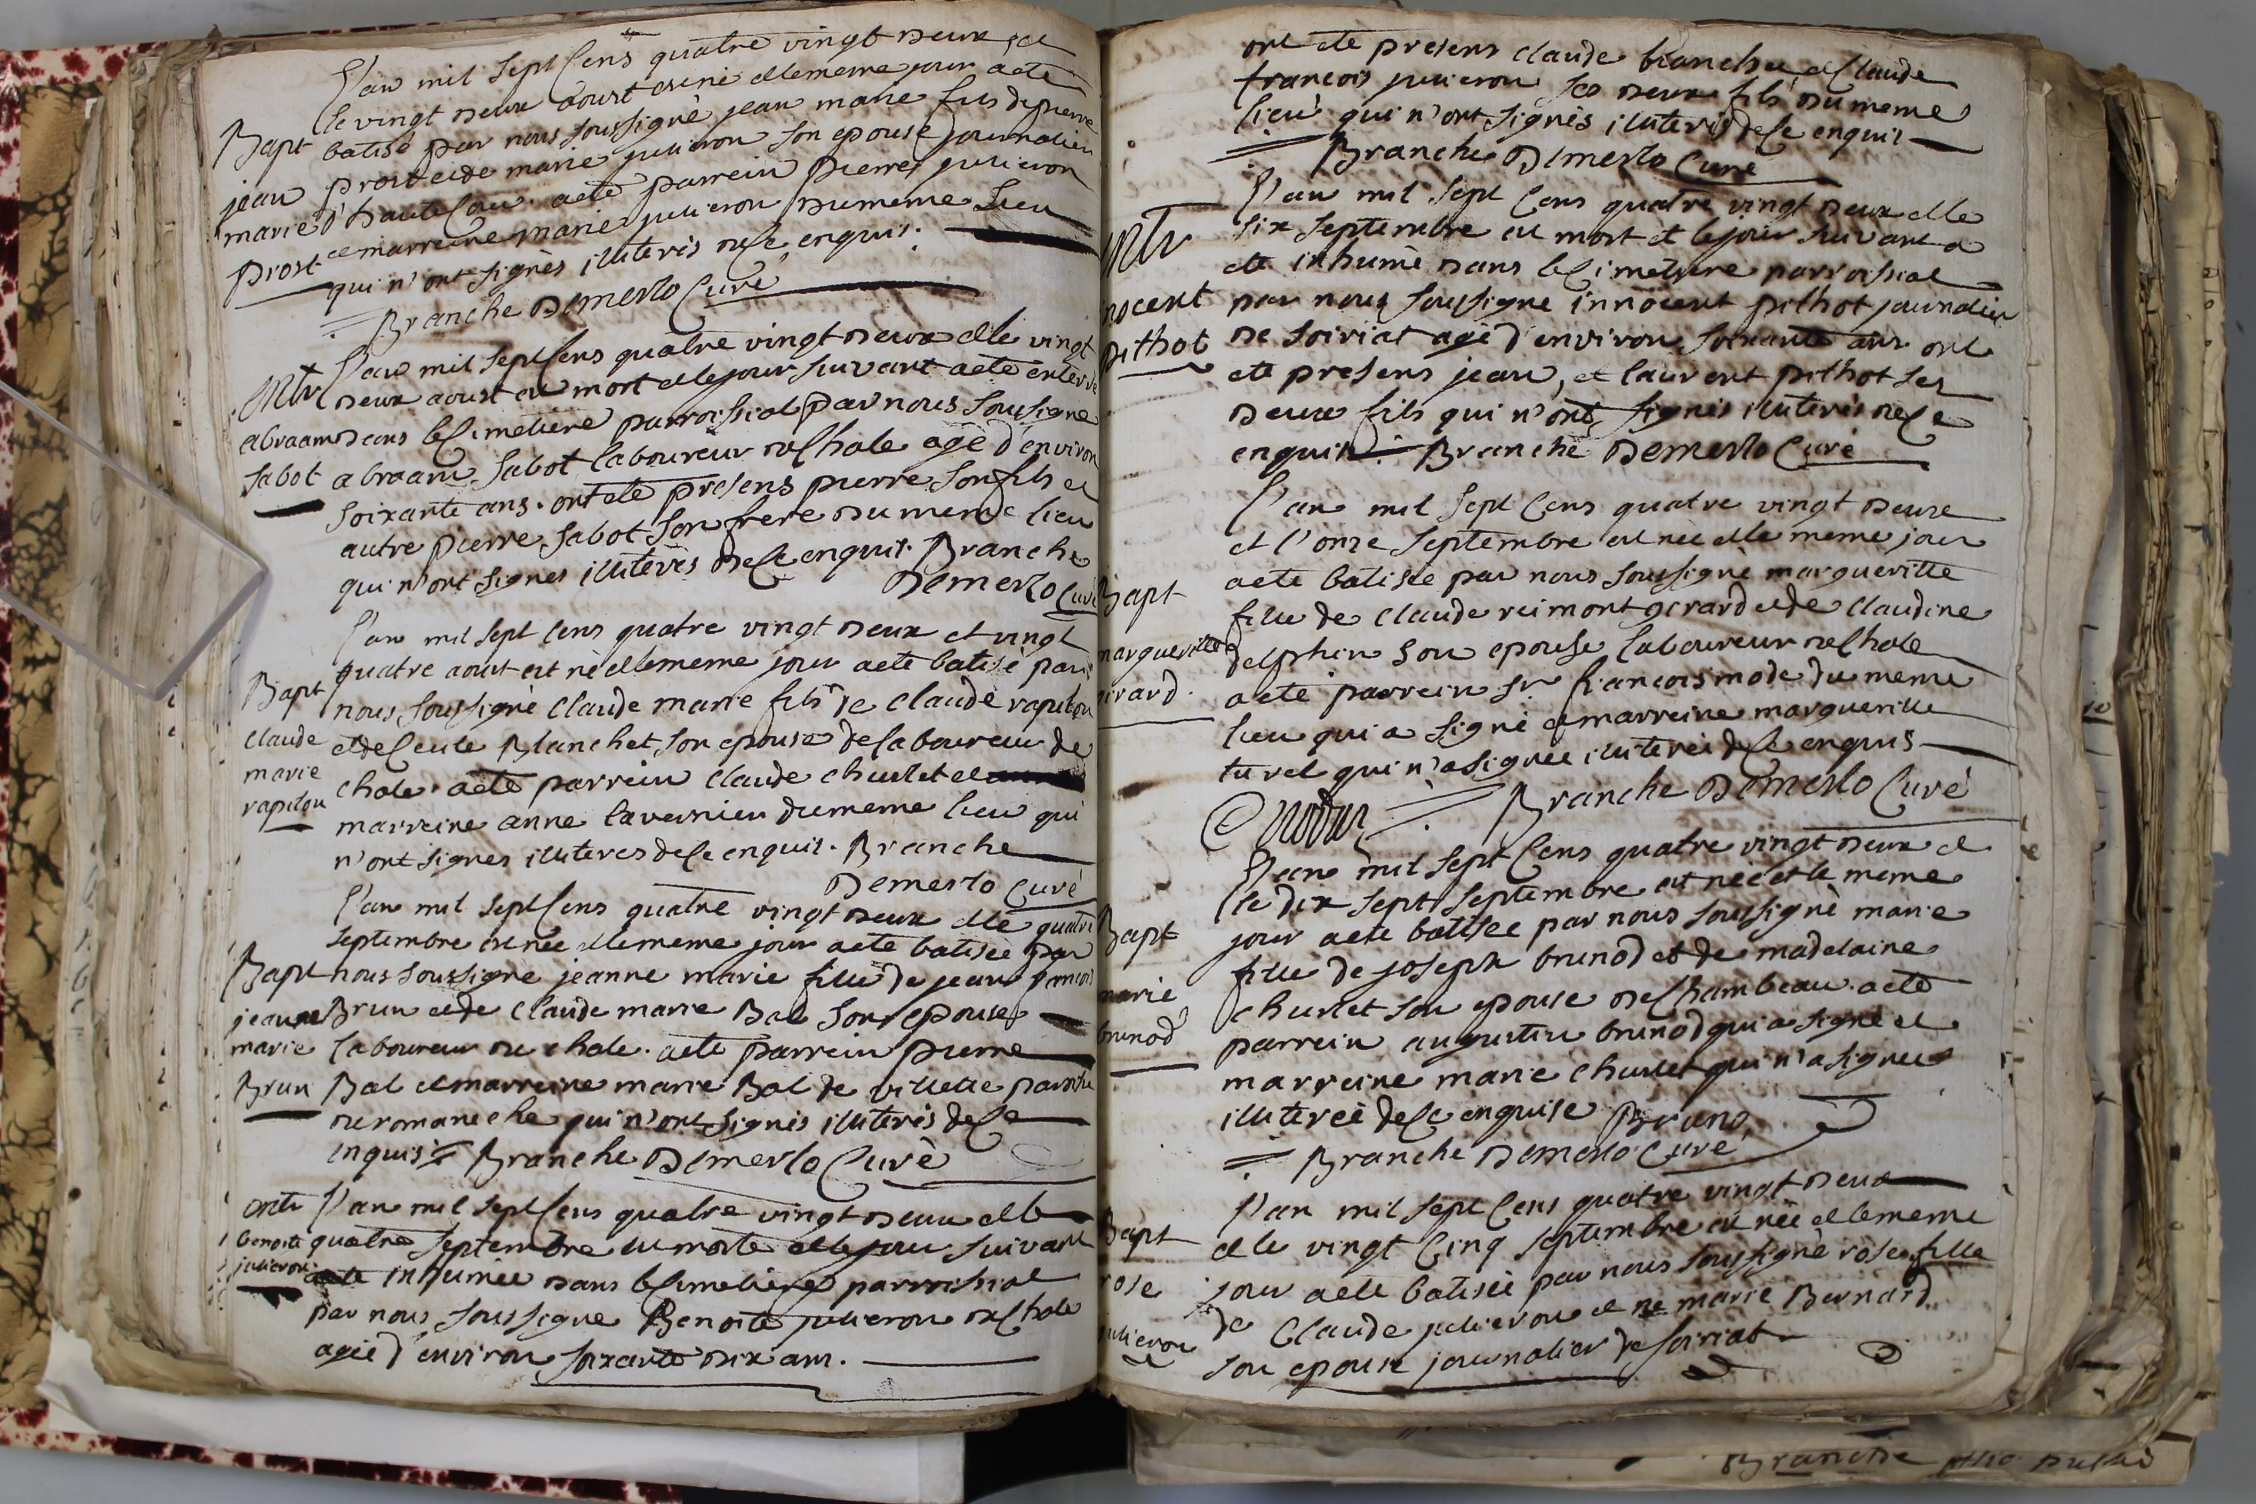 L'an mil sept Cens quatre vingt deux, et
le vingt deux aoust est né et le meme jour a eté
Bapt
jean
marie
prost
batisé par nous soussigné jean marie fils de pierre
prost et de marie juvieron son epouse journalier
d'hautecour. a eté parrein pierre juvieron
et marreine marie juvieron du meme Lieu
qui n'ont signés illiterés de ce enquis.
Branche Demerlo Curé
L'an mil sept Cens quatre vingt deux et le vingt
Mtr
abraam
sabot
deux aoust est mort et le jour suivant a eté enterré
dans le Cimetiere parroissial par nous soussigné
abraam sabot laboureur de Chole agé d'environ
soixante ans. ont eté presens pierre son fils et
autre pierre sabot son frere du meme lieu
qui n'ont signés illiterés de ce enquis. Branche
Demerlo Curé
L'an mil sept Cens quatre vingt deux et vingt
Bapt
claude
marie
rapitou
quatre aoust est né et le meme jour a eté batisé par
nous soussigné Claude marie fils de Claude rapitou
et de Blanchet son epouse de laboureur de
chole. a eté parrein Claude churlet et
marreine anne lavernier du meme lieu qui
n'ont signés illiterés de ce enquis. Branche
Demerlo Curé
L'an mil sept Cens quatre vingt deux et le quatre
septembre est née et le meme jour a eté batisée par
Bapt
jeanne
marie
Brun
nous soussigné jeanne marie fille de jean francois
Brun et de Claude marie Bal son epouse
laboureur de chole. a eté parrein pierre
Bal et marreine marie Bal de villette paroisse
de romaneche qui n'ont signés illiterés de ce
enquis Branche Demerlo Curé
mtr
benoite
juvieron
L'an mil sept Cens quatre vingt deux et le
quatre septembre est morte et le jour suivant
a eté inhumée dans le Cimetiere parroissial
par nous soussigné Benoite juvieron de Chole
agée d'environ soixante dix ans.
ont eté presens claude blanchet et Claude
francois juvieron ses deux fils du meme
lieu qui n'ont signés illiterés de ce enquis
Branche Demerlo Curé
L'an mil sept Cens quatre vingt deux et le
Mtr
nocent
pithot
six septembre est mort et le jour suivant a
eté inhumé dans le Cimetiere parroissial
par nous soussigné innocent pithot journalier
de soiriat agé d'environ soixante ans ont
eté presens jean, et laurent pithot ses
deux fils qui n'ont signés illiterés de ce
enquis. Branche Demerlo Curé
L'an mil sept Cens quatre vingt deux
et l'onze septembre est née et le meme jour
Bapt
margueritte
girard
a eté batisée par nous soussigné margueritte
fille de Claude reimont gerard et de Claudine
delphin son epouse laboureur de Chole
a eté parrein sr. francois mode du meme
lieu qui a signé et marreine margueritte
turel qui n'a signée illiterée de ce enquis
Branche Demerlo Curé
L'an mil sept Cens quatre vingt deux et
le dix sept septembre est née et le meme
Bapt
marie
brunod
jour a eté batisée par nous soussigné marie
fille de joseph brunod et de madelaine
churlet son epouse de Chambeau. a eté
parrein augustin brunod qui a signé et
marreine marie churlet qui n'a signée
illiterée de ce enquise Bruno
Branche Demerlo Curé
L'an mil sept Cens quatre vingt deux
Bapt
rose
juvieron
et le vingt Cinq septembre est née et le meme
jour a eté batisée par nous soussigné rose fille
de Claude juvieron et de marie Bernard
son epouse journalier de soiriat
Branche